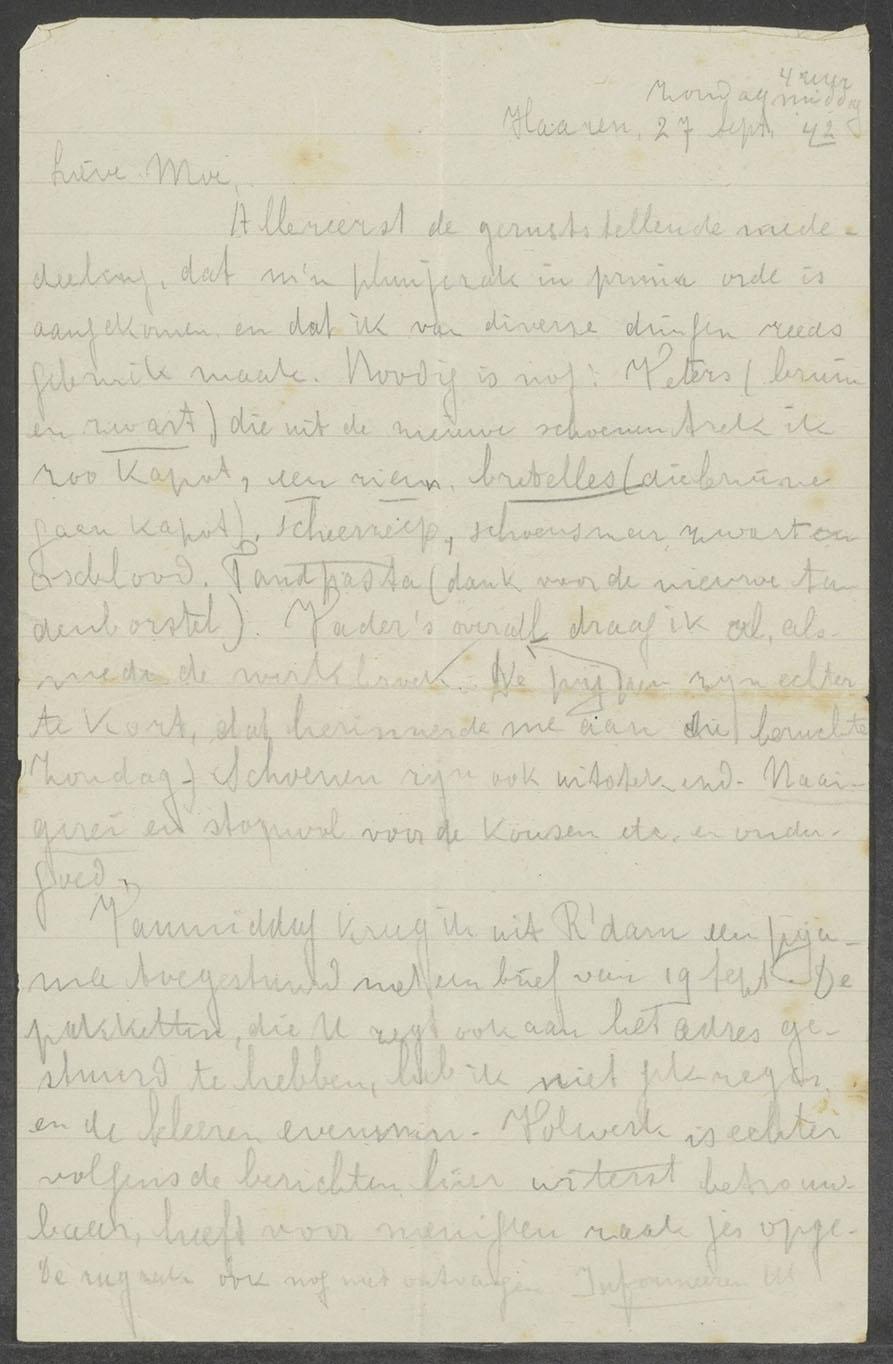 4 uur
Zondagmiddag
Haaren, 27 Sept. '42
Lieve Moe,
Allereerst de geruststellende mede-
deeling, dat m'n plunjezak in prima orde is
aangekomen en dat ik van diverse dingen reeds
gebruik maak. Noodig is nog: Veters (bruin
en zwart) die uit de nieuwe schoenen trek ik
zoo kapot, een riem, bretelles (die bruine
gaan kapot), scheerzeep, schoensmeer zwart en
ossebloed. Tandpasta (dank voor de nieuwe tan
denborstel). Vader's overall draag ik al, als-
mede de werkbroek. De pijpen zijn echter
te kort, dat herinnerde me aan die beruchte
Zondag.) Schoenen zijn ook uitstekend. Naai-
gerei en stopwol voor de kousen etc. en onder-
goed.
Vanmiddag kreeg ik uit R'dam een pyja-
ma toegestuurd met een brief van 19 Sept. De
pakketten, die U zegt ook aan het adres ge-
stuurd te hebben, heb ik niet gekregen,
en de kleeren evenmin. Volwerk is echter
volgens de berichten hier uiterst betrouw-
baar, heeft voor menigten zaakjes opge-
De rugzak ook nog niet ontvangen. Informeeren